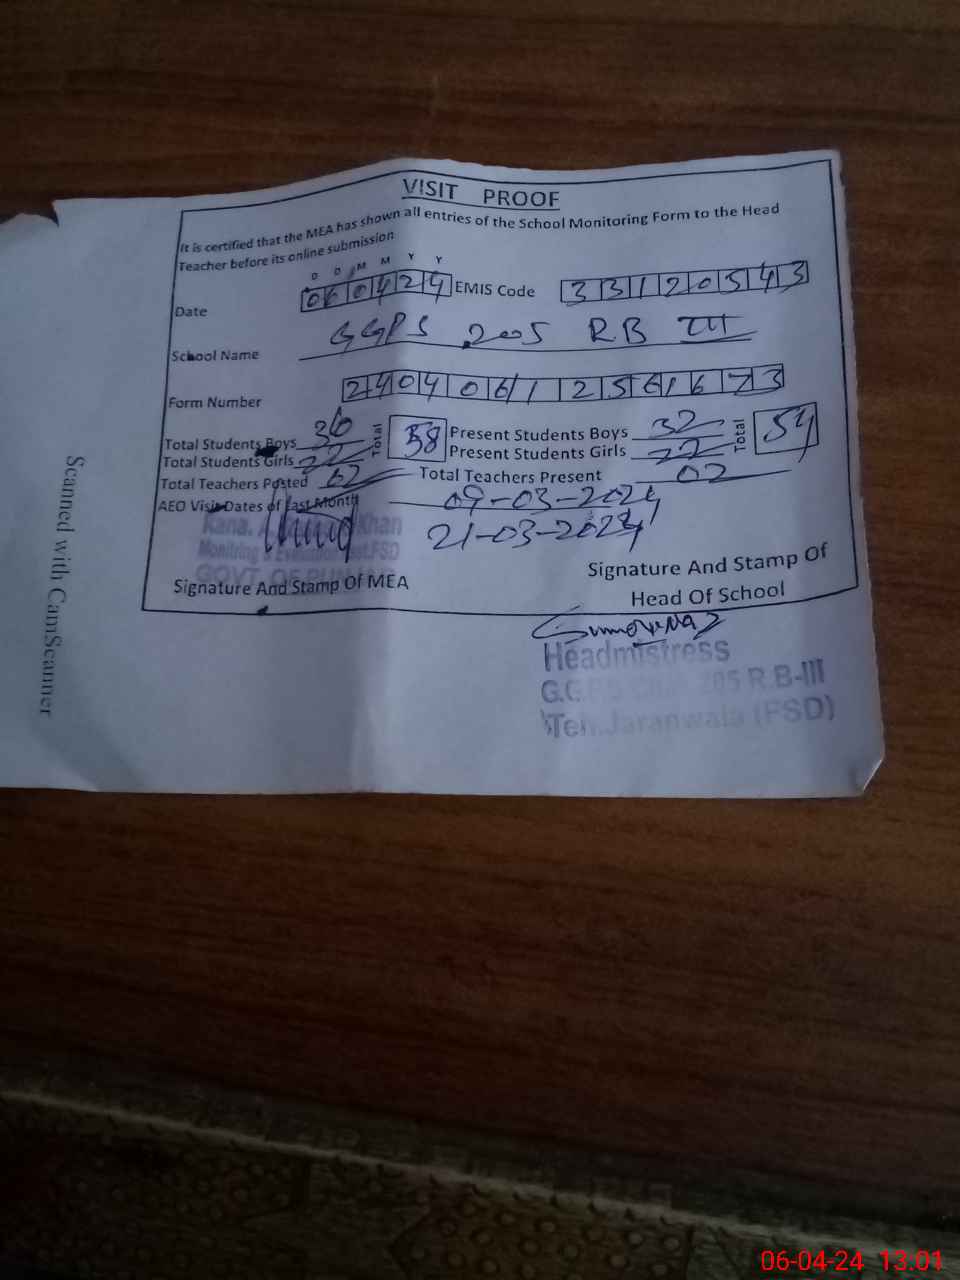 VISIT PROOF
It is certified that the MEA has shown all entries of the School Monitoring Form to the Head
Teacher before its online submission
D D M M Y Y
Date 060424 EMIS Code 33120543
School Name GGPS 205 RB III
Form Number 24040612561673
Total Students Boys 36 Total 58 Present Students Boys 32 Total 54
Total Students Girls 22 Present Students Girls 22
Total Teachers Posted 02 Total Teachers Present 02
AEO Visit Dates of Last Month 09-03-2024
21-03-2024
Rana. Khan
Monitring & FSD
GOVT. OF PUNJAB
Signature And Stamp Of MEA
Signature And Stamp Of
Head Of School
Headmistress
205 R.B-III
Teh.Jaranwala (FSD)
Scanned with CamScanner
06-04-24 13.01